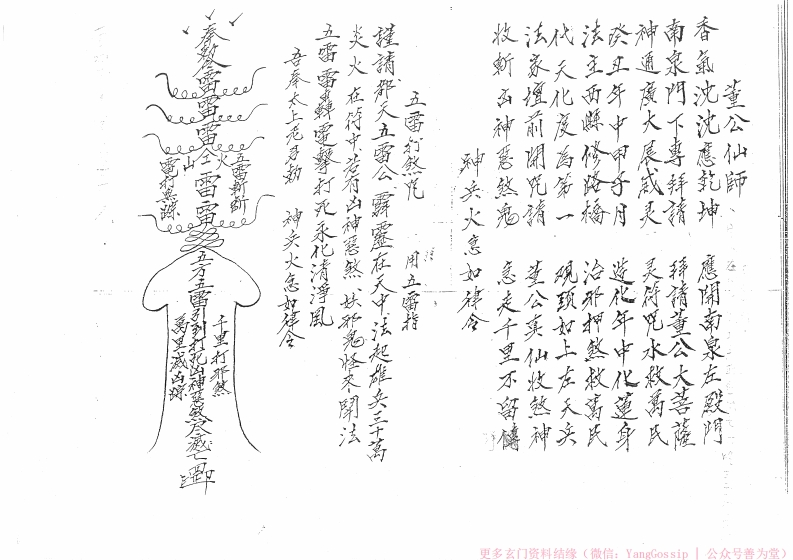 董公仙師
香氣沈沈應乾坤 應開南泉左殿門
南泉門下專拜請 拜請董公大菩薩
神通廣大展威灵 灵符咒水救萬民
癸丑年中甲子月 造化年中化蓮身
法主西縣修路橋 治邪押煞救萬民
代天化度為第一 硯頭如上左天兵
法家壇前開咒請 董公真仙收煞神
收斬凶神惡煞鬼 急走千里不留停
神兵火急如律令
五雷打煞咒 用五雷指
謹請都天五雷公 霹靂在天中 法起雄兵三十萬
炎火在符中 若有凶神惡煞、妖邪鬼怪不聞法
五雷雷轟電擊打 死永化清淨風
吾奉太上老君勅 神兵火急如律令
奉勅令雷雷雷
山 火
五雷斬斷
電打無踪
雷雷
五方五雷引到打死凶神惡煞
千里打邪煞
萬里滅凶踪
更多玄门资料结缘（微信：YangGossip | 公众号善为堂）